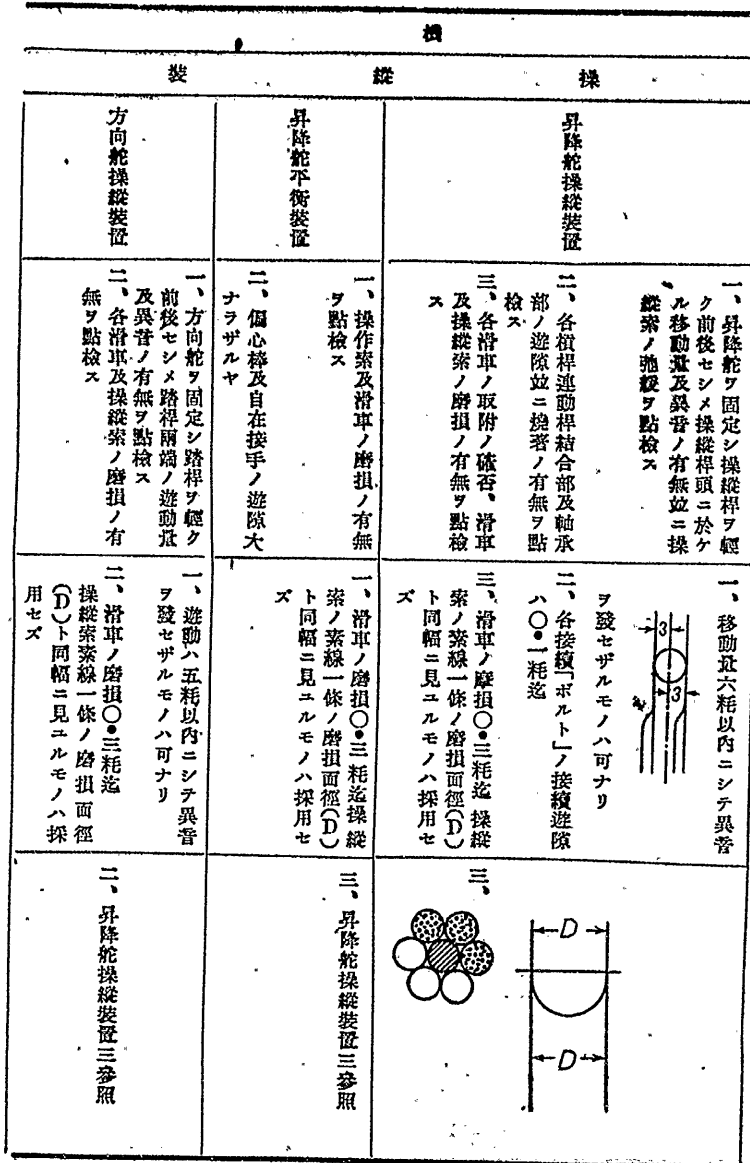 機
操縱裝
昇降舵操縱裝置
一、昇降舵ヲ固定シ操縱桿ヲ輕
ク前後セシメ操縱桿頭ニ於ケ
ル移動量及異音ノ有無竝ニ操
縱索ノ弛緩ヲ點檢ス
二、各槓桿連動桿結合部及軸承
部ノ遊隙竝ニ燒著ノ有無ヲ點
檢ス
三、各滑車ノ取附ノ確否、滑車
及操縱索ノ磨損ノ有無ヲ點檢
ス
一、移動量六粍以內ニシテ異音
3
3
ヲ發セザルモノハ可ナリ
二、各接續「ボルト」ノ接續遊隙
ハ〇・一粍迄
三、滑車ノ磨損〇・三粍迄操縱
索ノ素線一條ノ磨損面徑(D)
ト同幅ニ見ユルモノハ採用セ
ズ
D
D
三、
昇降舵平衡裝置
一、操作索及滑車ノ磨損ノ有無
ヲ點檢ス
二、偏心棒及自在接手ノ遊隙大
ナラザルヤ
一、滑車ノ磨損〇・三粍迄操縱
索ノ素線一條ノ磨損面徑(D)
ト同幅ニ見ユルモノハ採用セ
ズ
三、昇降舵操縱裝置三參照
方向舵操縱裝置
一、方向舵ヲ固定シ踏桿ヲ輕ク
前後セシメ踏桿兩端ノ遊動量
及異音ノ有無ヲ點檢ス
二、各滑車及操縱索ノ磨損ノ有
無ヲ點檢ス
一、遊動ハ五粍以內ニシテ異音
ヲ發セザルモノハ可ナリ
二、滑車ノ磨損〇・三粍迄
操縱索素線一條ノ磨損面徑
(D)ト同幅ニ見ユルモノハ採
用セズ
二、昇降舵操縱裝置三參照